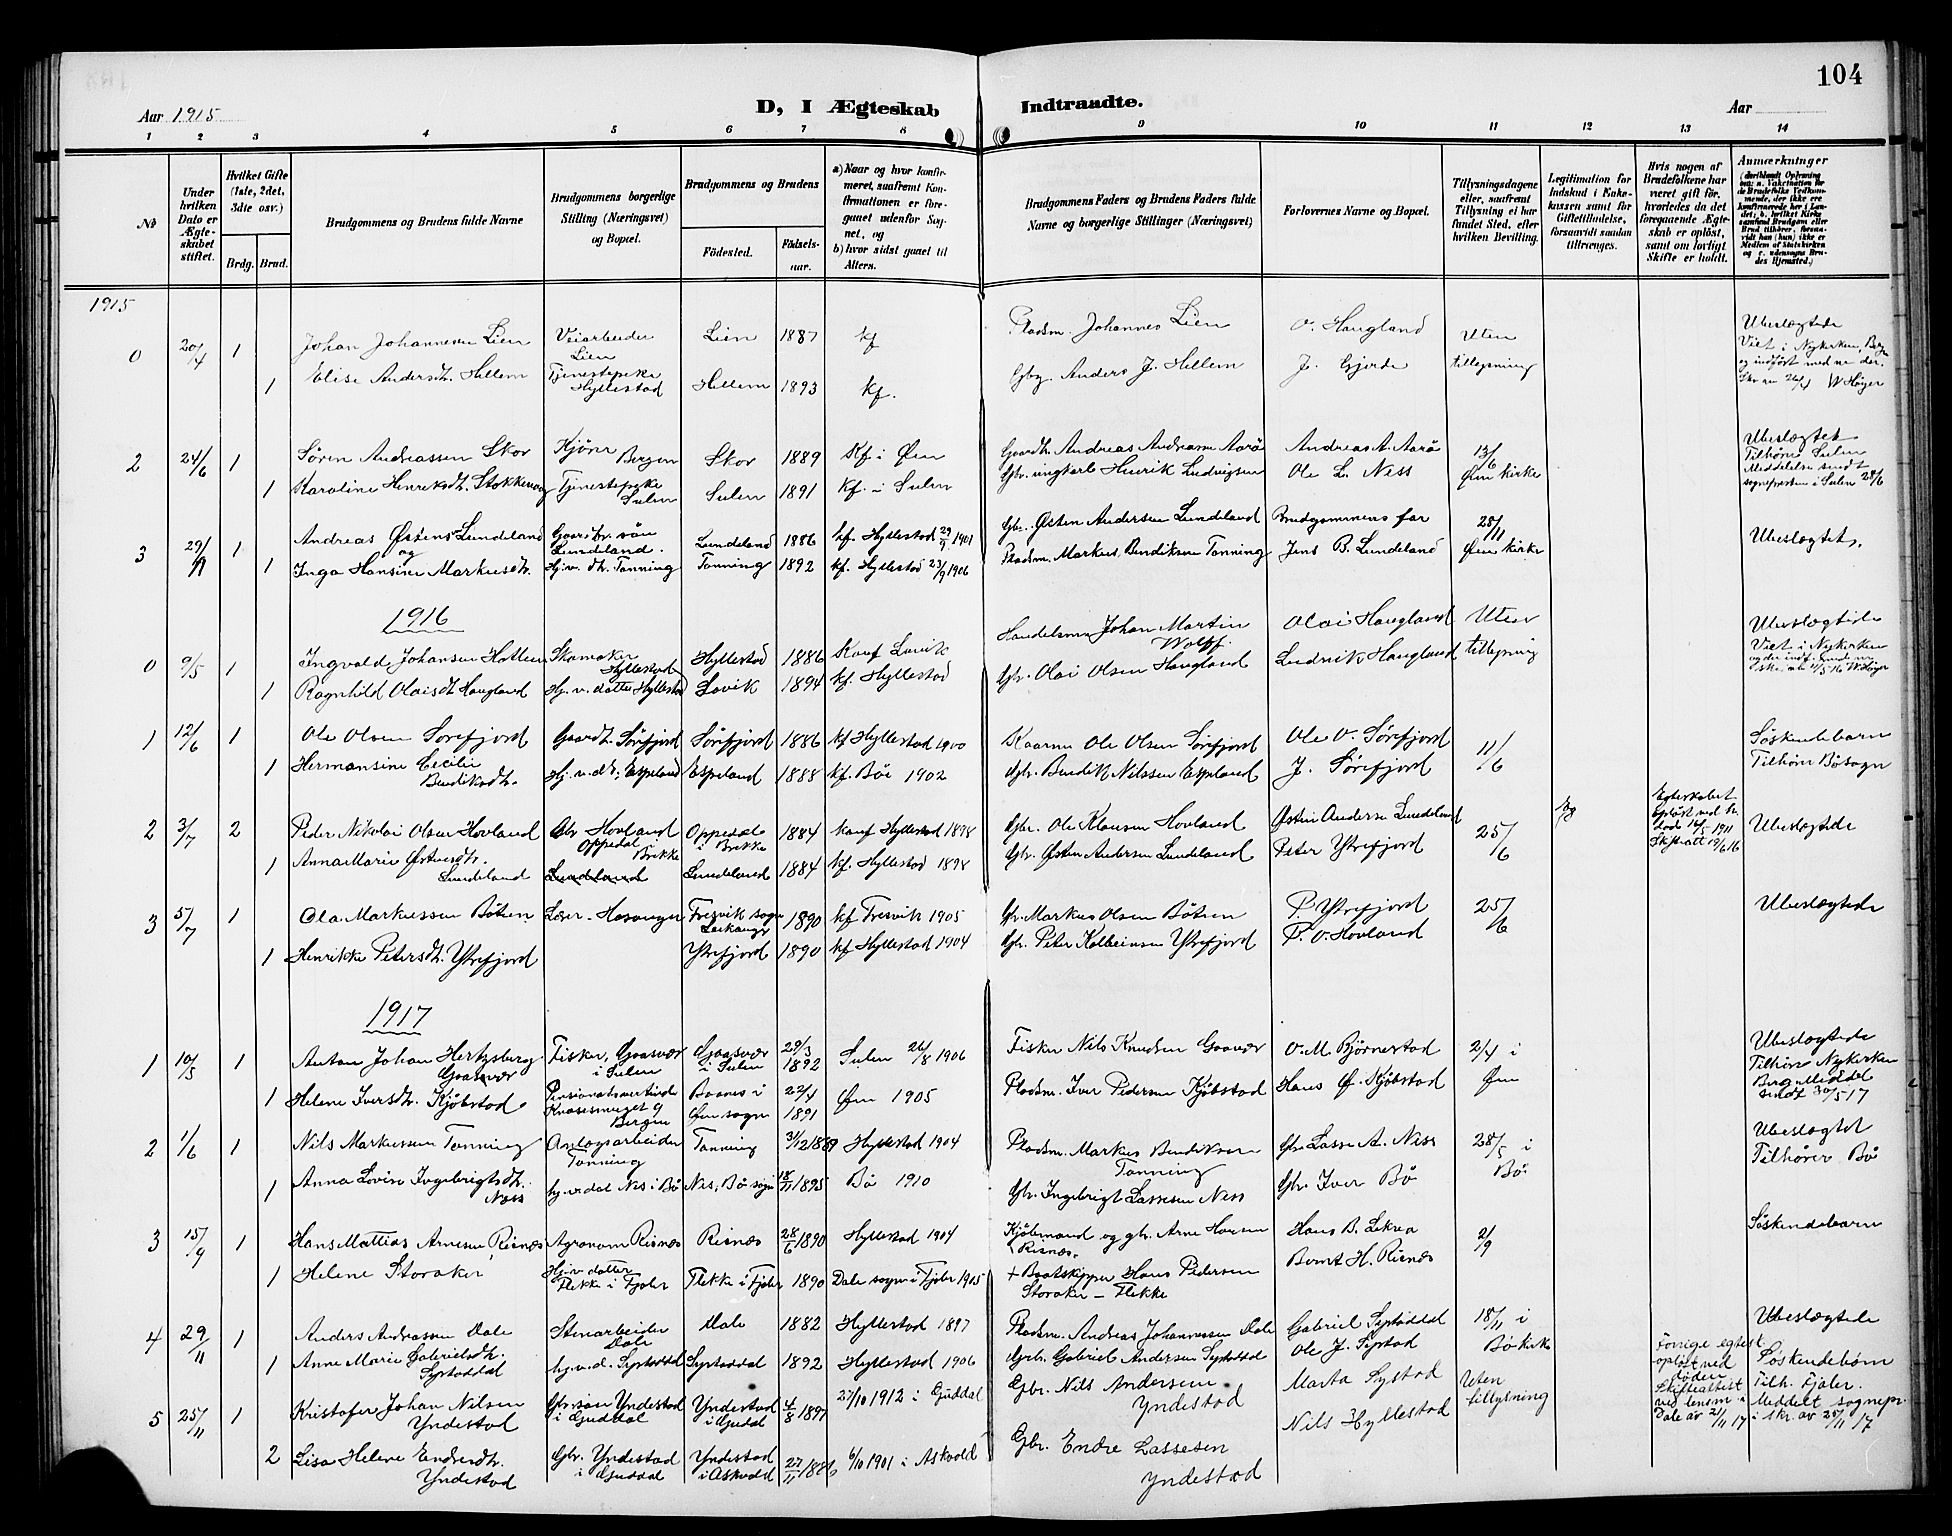 104
Aar 1915
D, I Ægteskab
Indtraadte.
Aar
1 2 3 4 5 6 7 8 9 10 11 12 13 14
№
Under hvilken Dato er Ægteskabet stiftet.
Hvilket Gifte (1ste, 2det, 3die osv.)
Brdg. Brud.
Brudgommens og Brudens fulde Navne
Brudgommens borgerlige Stilling (Næringsvei) og Bopæl.
Brudgommens og Brudens
Födested.
Födselsaar.
a) Naar og hvor konfirmeret, saafremt Konfirmationen er foregaaet udenfor Sognet, og
b) hvor sidst gaaet til Alters.
Brudgommens Faders og Brudens Faders fulde Navne og borgerlige Stillinger (Næringsvei)
Forlovernes Navne og Bopæl.
Tillysningsdagene eller, saafremt Tillysning ei har fundet Sted, efter hvilken Bevilling.
Legitimation for Indskud i Enkekassen samt for Giftetilladelse, forsaavidt saadan tiltrænges.
Hvis nogen af Brudefolkene har været gift før, hvorledes da det foregaaende Ægteskab er opløst, samt om lovligt Skifte er holdt.
Anmærkninger
1915
0 20/4 1 Johan Johannesen Lien Veiarbeider Lien Lien 1887 kf Pladsm. Johannes Lien O. Haugland Uten tillysning Ubeslægtede
Viet i Nykirken, Bergen
1 Elise Andersdt. Hellem Tjenestepike Hyllestad Hellem 1893 kf. Gbr. Anders J. Hellem J. Gjerde
W Høyer
2 24/6 1 Sören Andreassen Skor Bergen Skor 1889 Kf i Øen Gaardbr. Andreas Andreasen Aarö Andreas A. Aarö 13/6 Øens kirke Ubeslægtet
Tilhører Sulen
Meddelelse sendt sognepresten i Sulen 28/6
1 Karoline Henriksdt. Stokkevaag Tjenestepike Sulen Sulen 1891 Kf. i Sulen Gbr. ungkarl Henrik Ludvigsen Ole L. Ness
3 29/11 1 Andreas Østens. Lundeland Gaardbr. sön Lundeland. Lundeland 1886 kf. Hyllestad 29/9 1901 Gbr. Østen Andersen Lundeland Brudgommens far 28/11 Øens kirke Ubeslægtet.
og
1 Inga Hansine Markusdt. Hj.v. dt. Tonning Tonning 1892 kf. Hyllestad 23/9 1906 Pladsm. Markus Bendiksen Tonning Jens B. Lundeland
1916
0 9/5 1 Ingvald Johansen Hatlem Skomaker Hyllestad Hyllestad 1886 Konf Lavik Handelsm. Johan Martin Wolff. Olai Haugland Uten tillysning Ubeslægtede
Viet i Nykirken
1 Ragnhild Olaisdt. Haugland Hj. v. datter Hyllestad Lavik 1894 kf. Hyllestad Gbr. Olai Olsen Haugland Ludvik Haugland
1 12/6 1 Ole Olsen Sørefjord Gaardbr. Sørefjord Sørefjord 1886 kf Hyllestad 1900 Kaarm. Ole Olsen Sørefjord Ole O. Sørefjord 11/6 Søskendebarn
Tilhører Bø sogn
1 Hermansine Cecilie Bendiksdt. Hj. v. dt. Espeland Espeland 1888 kf. Bøe 1902 Gbr. Bendik Nilssen Espeland J. Sørefjord
2 3/7 2 Peder Nikolai Olsen Hovland Gbr Hovland Oppedal Brekke Oppedal i Brekke 1884 konf Hyllestad 1898 Gbr. Ole Klausen Hovland Østen Andersen Lundeland 25/6 Egteskabet opløst ved hs. død 14/5 1911 Skifteatt 19/6 16 Ubeslægtede
1 Anna Marie Østensdt. Lundeland Lundeland Lundeland 1884 kf. Hyllestad 1898 Gbr. Østen Andersen Lundeland Peter Ytrefjord
3 5/7 1 Ola Markussen Bötun Lærer - Hosanger Fresvik sogn Leikanger 1890 kf Fresvik 1905 Gbr. Markus Olsen Bötun P. Ytrefjord 25/6 Ubeslægtede
1 Henrikke Petersdt. Ytrefjord Ytrefjord 1890 kf Hyllestad 1904 Gbr. Peter Kolbeinsen Ytrefjord P. O. Hovland
1917
1 10/5 1 Anton Johan Hertzberg Gaasvær Fisker, Gaasvær i Sulen Gaasvær i Sulen 29/3 1892 Sulen 26/8 1906 Fisker Nils Knudsen Gaasvær O. M. Bjørnestad 2/4 i Øen Ubeslægtede
Tilhører Nykirken Bergen. Meddel sendt 30/5 17
1 Helene Iversdt. Kjöbstad Pensionatsvertinde Bergen Baasnes i Øen sogn 22/4 1891 Øen 1905 Pladsm. Iver Pedersen Kjöbstad Hans Ø. Kjöbstad
2 1/6 1 Nils Markussen Tonning Anlægsarbeider Tonning Tonning 31/12 1889 Hyllestad 1904 Pladsm. Markus Bendiksen Tonning Gbr. Lasse A. Ness 28/5 i Bö Ubeslægtet
Tilhører Bö
1 Anna Lovise Ingebrigtsdt. Ness hj. v. dat Nes i Bö Nes, Bö sogn 18/11 1895 Bö 1910 Gbr. Ingebrigt Lassesen Ness Gbr. Iver Bö
3 15/9 1 Hans Mattias Arnesen Risnæs Agronom Risnæs Risnæs 28/6 1890 Hyllestad 1904 Kjöbmand og gbr. Arne Hansen Risnæs. Hans B. Lekva 2/9 Söskendebarn
1 Helene Storaker Hj. v datter Flekke i Fjaler Flekke i Fjaler 1890 Dale sogn i Fjaler 1905 + Baatskipper Hans Pedersen Storaker - Flekke Bernt H. Risnæs
4 29/11 1 Anders Andreassen Dale Stenarbeider Dale Dale 1882 Hyllestad 1897 Pladsm. Andreas Johannessen Dale Gabriel Systaddal 18/11 i Bø kirke Ubeslægtede
1 Anne Marie Gabrielsdt. Systaddal hj. v. d. Systaddal Systaddal 1892 Hyllestad 1906 Gbr. Gabriel Andersen Systaddal Ole J. Systad
5 25/11 1 Kristofer Johan Nilsen Yndestad Gbr. søn Yndestad i Guddal Yndestad i Guddal 4/8 1897 27/10 1912 i Guddal Gbr. Nils Andersen Yndestad Marta Systad Uten tillysning Forrige egtesk opløst ved døden Skifteattest ved lensm i Dale av 21/11 17 Søskendebørn
Tilh. Fjaler.
Meddelt sognepr. i skr. av 25/11 17
2 Lisa Helene Endresdt. Yndestad Gbr. Yndestad i Guddal Yndestad i Askvold 27/11 1886 6/10 1901 i Askvold Gbr. Endre Lassesen Yndestad Nils Hyllestad